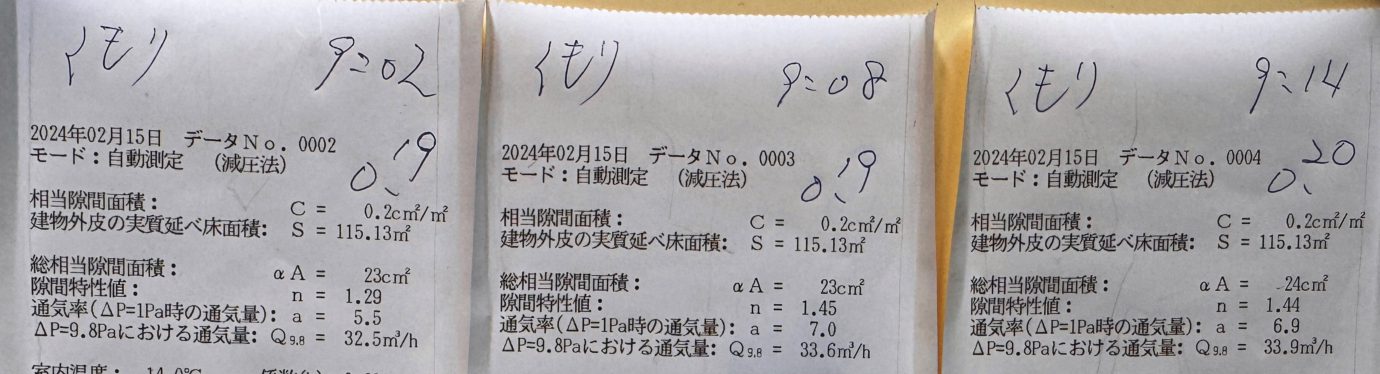 くもり 9:02
2024年02月15日 データNo. 0002
モード：自動測定 (減圧法) 0.19
相当隙間面積： C = 0.2c㎡/㎡
建物外皮の実質延べ床面積： S = 115.13㎡
総相当隙間面積： αA = 23c㎡
隙間特性値： n = 1.29
通気率(ΔP=1Pa時の通気量)： a = 5.5
ΔP=9.8Paにおける通気量： Q9.8 = 32.5㎥/h
室内温度： 14.0℃
くもり 9:08
2024年02月15日 データNo. 0003
モード：自動測定 (減圧法) 0.19
相当隙間面積： C = 0.2c㎡/㎡
建物外皮の実質延べ床面積： S = 115.13㎡
総相当隙間面積： αA = 23c㎡
隙間特性値： n = 1.45
通気率(ΔP=1Pa時の通気量)： a = 7.0
ΔP=9.8Paにおける通気量： Q9.8 = 33.6㎥/h
くもり 9:14
2024年02月15日 データNo. 0004
モード：自動測定 (減圧法) 0.20
相当隙間面積： C = 0.2c㎡/㎡
建物外皮の実質延べ床面積： S = 115.13㎡
総相当隙間面積： αA = 24c㎡
隙間特性値： n = 1.44
通気率(ΔP=1Pa時の通気量)： a = 6.9
ΔP=9.8Paにおける通気量： Q9.8 = 33.9㎥/h